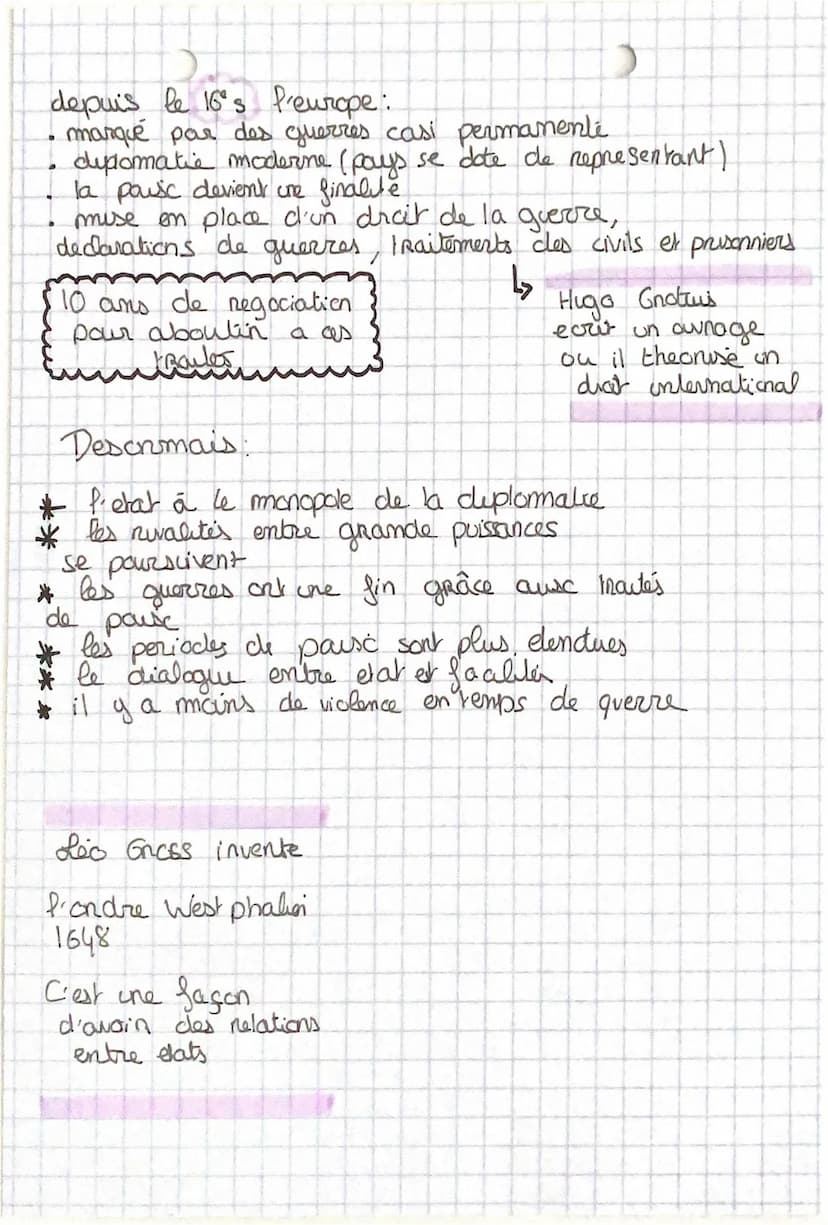 depuis le 16e s l'europe :
• marqué par des guerres casi permanente
• diplomatie moderne (pays se dote de representant)
• la paix devient une finalité
• mise en place d'un droit de la guerre,
declarations de guerres, traitements des civils et prisonniers
10 ans de negociation
pour aboutir a ces
traités
↳ Hugo Grotius
ecrit un ouvrage
ou il theorise un
droit international
Desormais :
* l'etat à le monopole de la diplomatie
* les rivalités entre grande puissances
se poursuivent
* les guerres ont une fin grâce aux traités
de paix
* les periodes de paix sont plus etendues
* le dialogue entre etat est facilité
* il y a moins de violence en temps de guerre
Léo Gross invente
l'ordre Westphalien
1648
C'est une façon
d'avoir des relations
entre etats